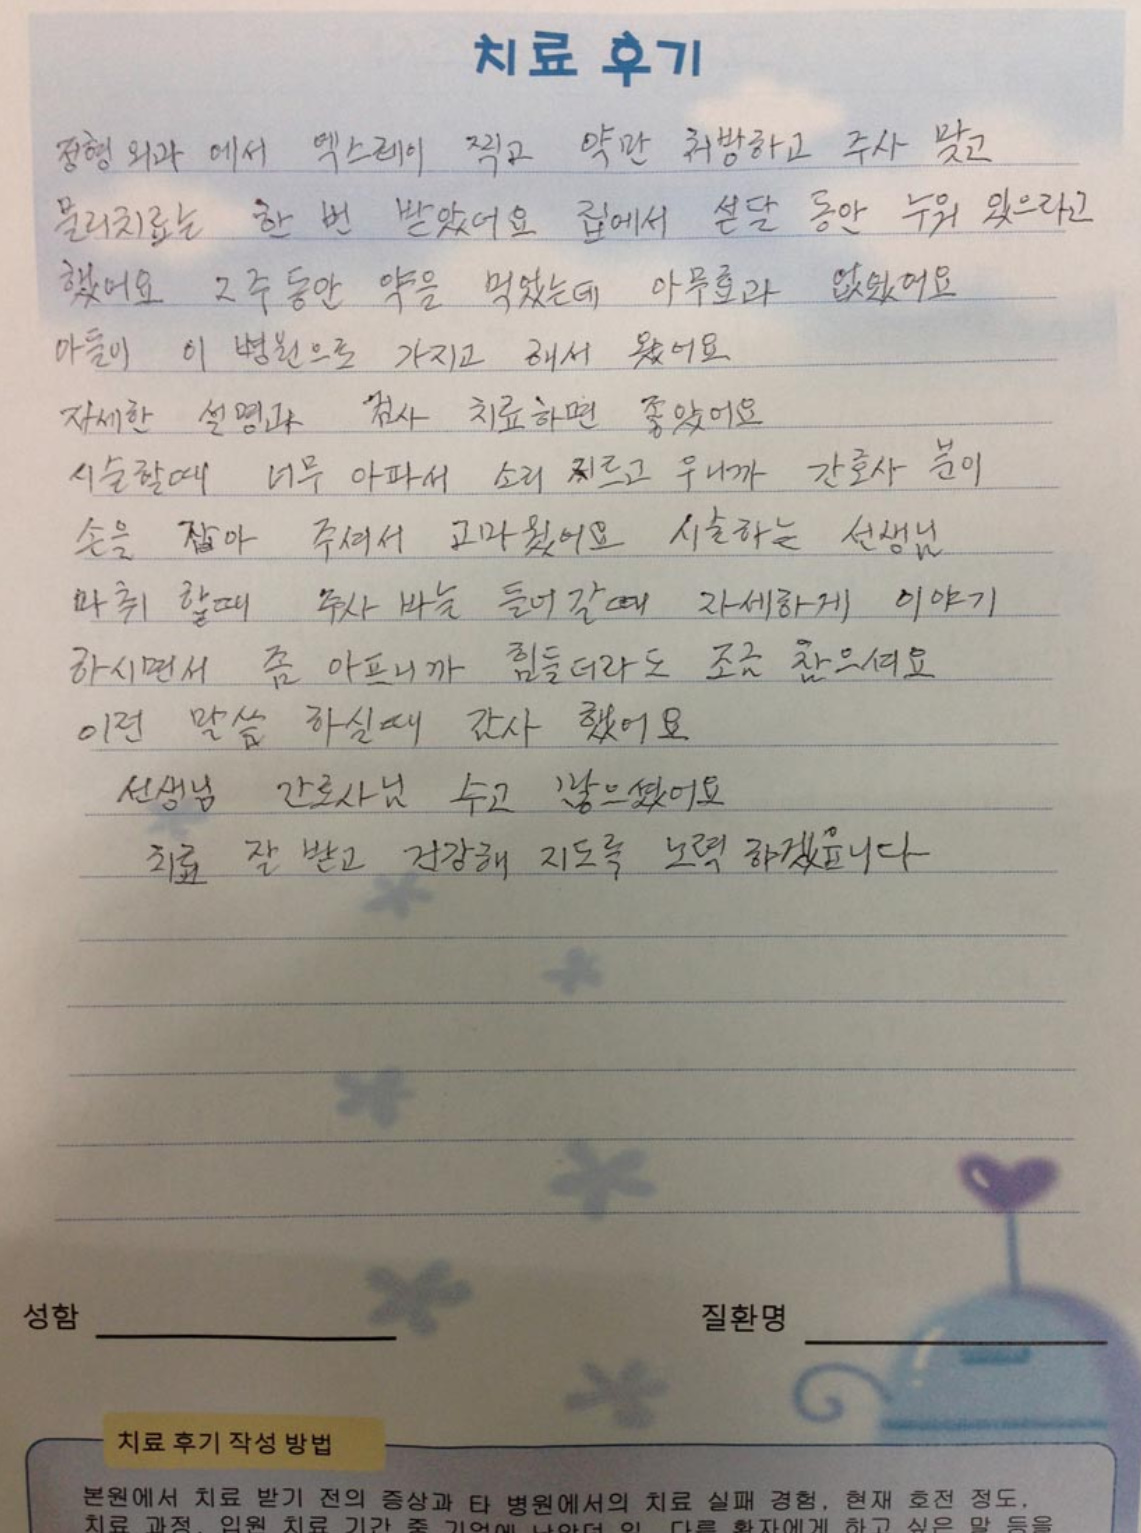 치료 후기
정형외과 에서 엑스레이 찍고 약만 처방하고 주사 맞고
물리치료는 한 번 받았어요 집에서 섣달 동안 누워 있으라고
했어요 2주동안 약을 먹었는데 아무효과 없었어요
아들이 이 병원으로 가지고 해서 왔어요
자세한 설명과 검사 치료하면 좋았어요
시술할때 너무 아파서 소리 지르고 우니까 간호사 분이
손을 잡아 주셔서 고마웠어요 시술하는 선생님
마취 할때 주사 바늘 들어갈때 자세하게 이야기
하시면서 좀 아프니까 힘들더라도 조금 참으셔요
이런 말씀 하실때 감사 했어요
선생님 간호사님 수고 많으셨어요
치료 잘 받고 건강해 지도록 노력 하겠읍니다
성함
질환명
치료 후기 작성 방법
본원에서 치료 받기 전의 증상과 타 병원에서의 치료 실패 경험, 현재 호전 정도,
치료 과정, 입원 치료 기간 중 기억에 남았던 일, 다른 환자에게 하고 싶은 말 등을